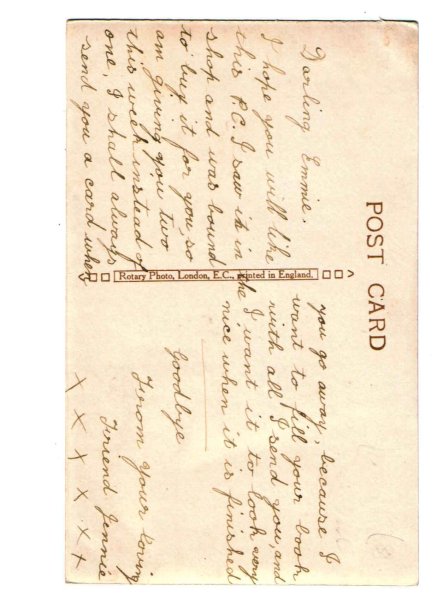 POST CARD
Darling Emmie.
I hope you will like
this P.C. I saw it in the
shop and was bound
to buy it for you, so
am giving you two
this week instead of
one, I shall always
send you a card when
Rotary Photo, London, E.C., printed in England.
you go away, because I
want to fill your book
with all I send you, and
I want it to look very
nice when it is finished
Goodbye
From your loving
Friend Jennie
X X X X X X